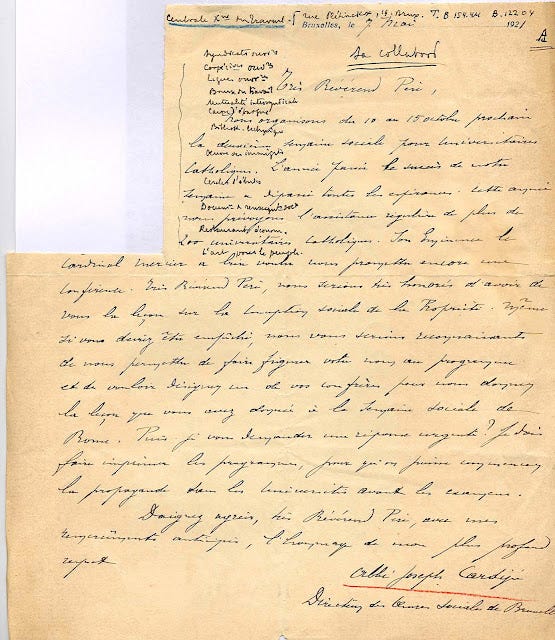 Centrale Xne du Travail - 1 rue Plétinckx, 19, Brux. T. B 154.44 B. 12204
Bruxelles, le 7 Mai 1921
A
Syndicats ouvrs
Coopératives ouvres
Ligues ouvres
Bourse du travail
Mutualité intersyndicale
Caisse d'épargne
Biblioth. technique
Œuvre des immigrés
Cercles d'études
Docum. & renseignts soc.
Restaurants économ.
L'art pour le peuple
Très Révérend Père,
Nous organisons du 10 au 15 octobre prochain
la deuxième Semaine sociale pour universitaires
catholiques. L'année passée le succès de notre
Semaine a dépassé toutes les espérances. Cette année
nous prévoyons l'assistance régulière de plus de
200 universitaires catholiques. Son Eminence le
Cardinal Mercier a bien voulu nous promettre encore une
conférence. Très Révérend Père, nous serions très honorés d'avoir de
vous la leçon sur la conception sociale de la Propriété. Même
si vous deviez être empêché, nous vous serions reconnaissants
de nous permettre de faire figurer votre nom au programme
et de vouloir désigner un de vos confrères pour nous donner
la leçon que vous avez donnée à la Semaine sociale de
Rome. Puis-je vous demander une réponse urgente? Je dois
faire imprimer les programmes, pour qu'on puisse commencer
la propagande dans les Universités avant les examens.
Daignez agréer, très Révérend Père, avec mes
remerciements anticipés, l'hommage de mon plus profond
respect
Abbé Joseph Cardijn
Directeur des Œuvres sociales de Bruxelles